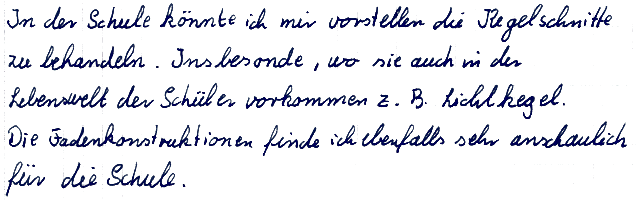 In der Schule könnte ich mir vorstellen die Kegelschnitte
zu behandeln. Insbesonde, wo sie auch in der
Lebenswelt der Schüler vorkommen z. B. Lichtkegel.
Die Fadenkonstruktionen finde ich ebenfalls sehr anschaulich
für die Schule.